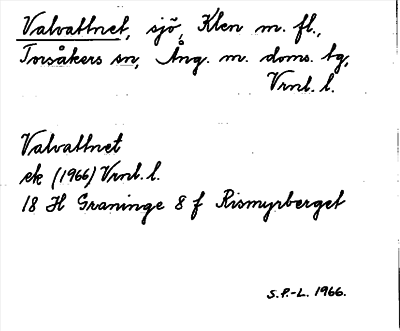 Valvattnet, sjö, Klen m. fl.,
Torsåkers sn, Ång. m. doms. bg,
Vrnl. l.
Valvattnet
ek (1966) Vrnl. l.
18 H Graninge 8 f Rismyrberget
S.P.-L. 1966.